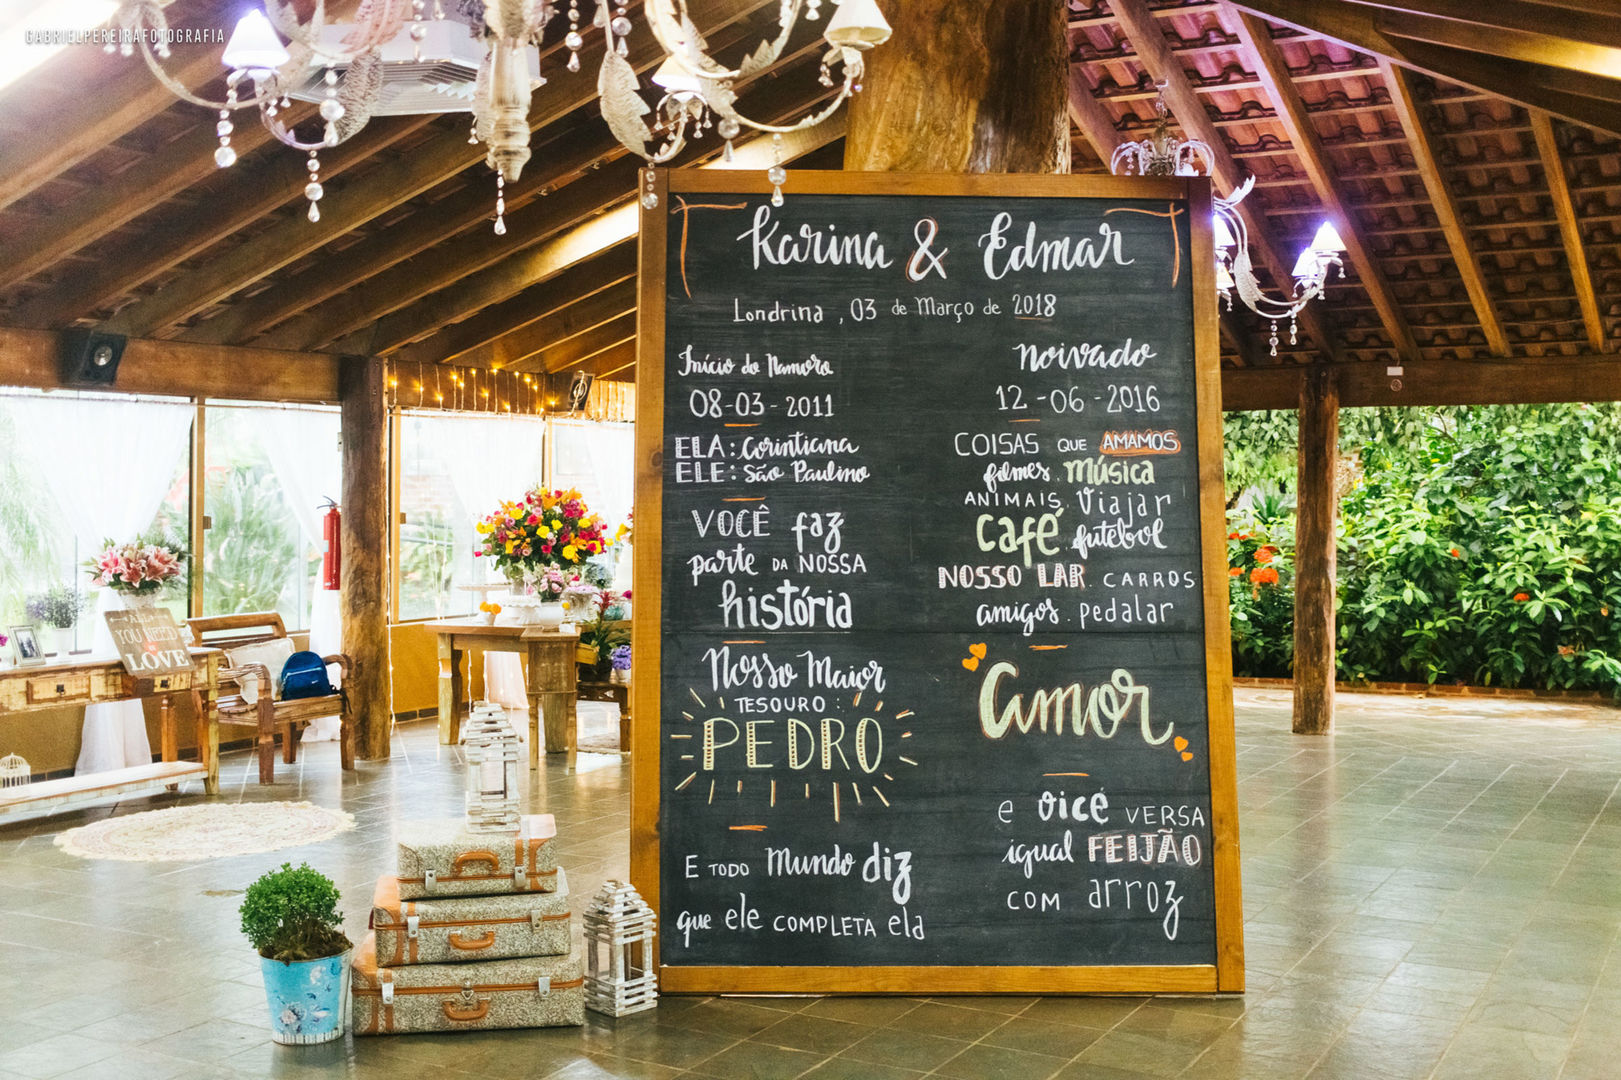 GABRIELPEREIRAFOTOGRAFIA
Karina & Edmar
Londrina, 03 de Março de 2018
Início do Namoro
08-03-2011
ELA: Corintiana
ELE: São Paulino
VOCÊ faz
parte DA NOSSA
história
Nosso Maior
TESOURO:
PEDRO
E TODO Mundo diz
que ele COMPLETA ela
Noivado
12-06-2016
COISAS QUE AMAMOS
filmes. Música
ANIMAIS. Viajar
Café. futebol
NOSSO LAR. CARROS
amigos. pedalar
Amor
e vicé VERSA
igual FEIJÃO
COM arroz
ALL
YOU NEED
is
LOVE